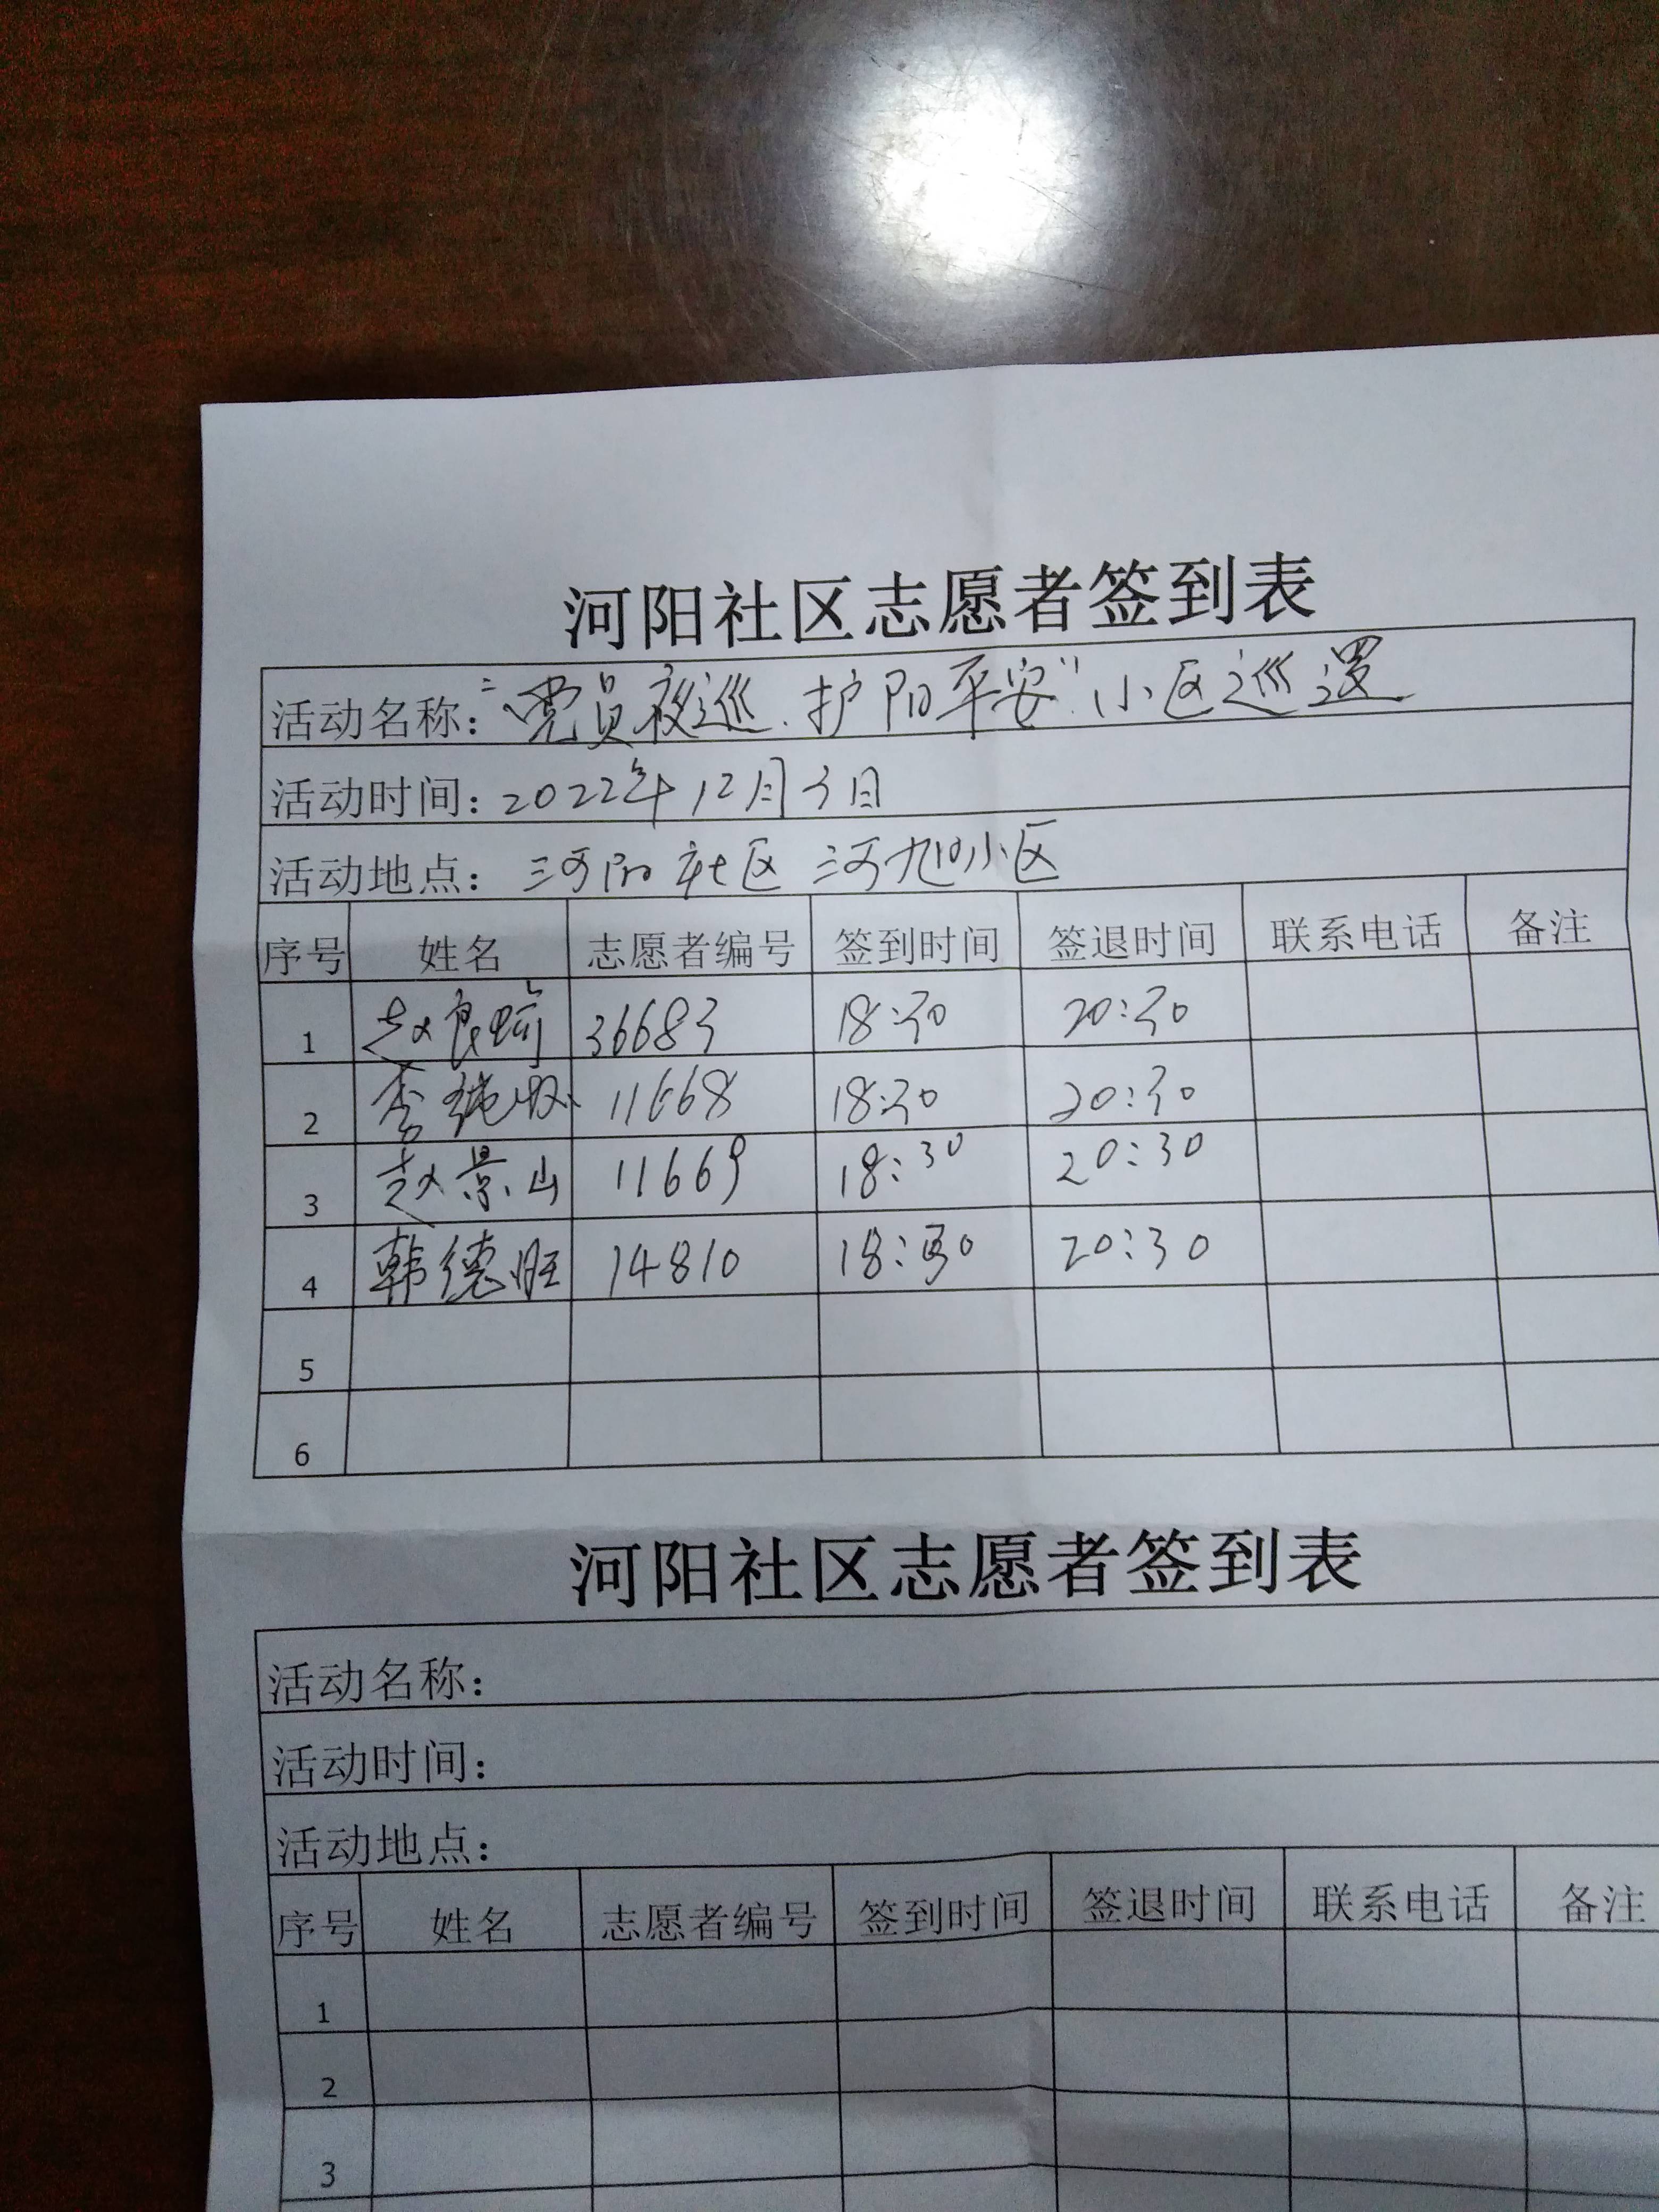 河阳社区志愿者签到表
活动名称："党员夜巡、护阳平安"小区巡逻
活动时间：2022年12月3日
活动地点：河阳社区 河旭小区
序号 姓名 志愿者编号 签到时间 签退时间 联系电话 备注
1 赵良 36683 18:30 20:30
2 李 11668 18:30 20:30
3 赵景山 11669 18:30 20:30
4 韩德旺 14810 18:30 20:30
5
6
河阳社区志愿者签到表
活动名称：
活动时间：
活动地点：
序号 姓名 志愿者编号 签到时间 签退时间 联系电话 备注
1
2
3